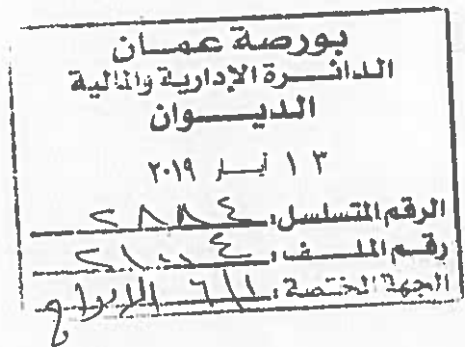 بورصة عمان
الدائرة الإدارية والمالية
الديوان
١٣ أيار ٢٠١٩
الرقم المتسلسل: ٢٨٨٤
رقم الملف: ٢١٠٠٤
الجهة المختصة: